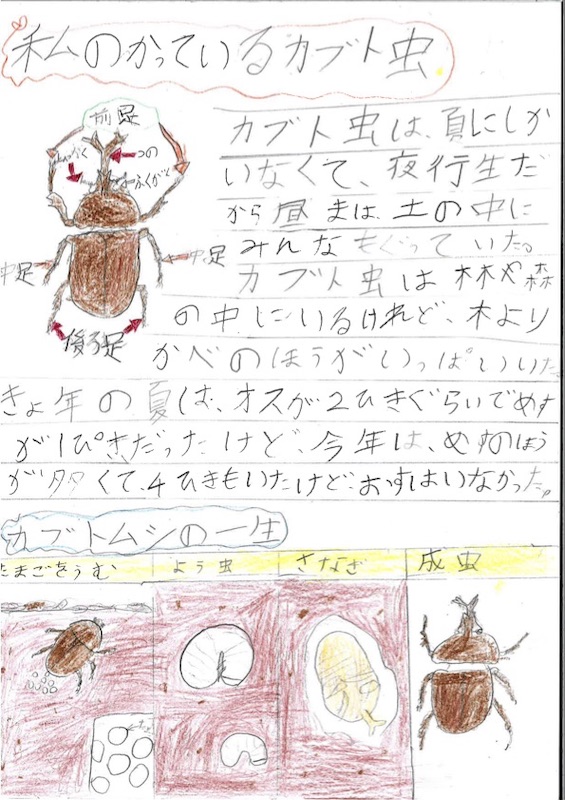 私のかっているカブト虫
前足
しょっかく
つの
ふくがん
中足
中足
後ろ足
カブト虫は、夏にしか
いなくて、夜行生だ
から昼まは、土の中に
みんなもぐっていた。
カブト虫は林や森
の中にいるけれど、木より
かべのほうがいっぱいいた
きょ年の夏は、オスが2ひきぐらいでめす
が1ぴきだったけど、今年は、めすのほう
が多くて、4ひきもいたけど、おすはいなかった。
カブトムシの一生
たまごをうむ
よう虫
さなぎ
成虫